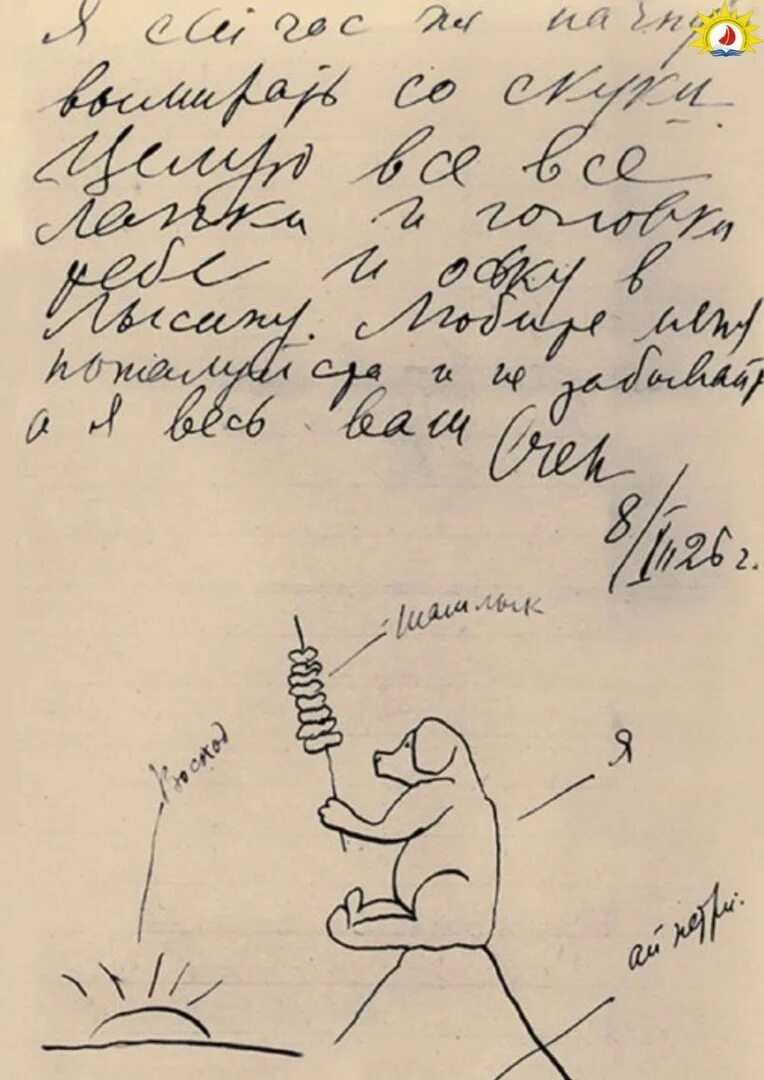 Я сейчас же начну
вымирать со скуки.
Целую все все
лапки и головки
тебе и Оську в
лысину. Любите меня
пожалуйста и не забывайт
а я весь ваш Счен
8/III 26 г.
шашлык
Восход
Я
ай петри.